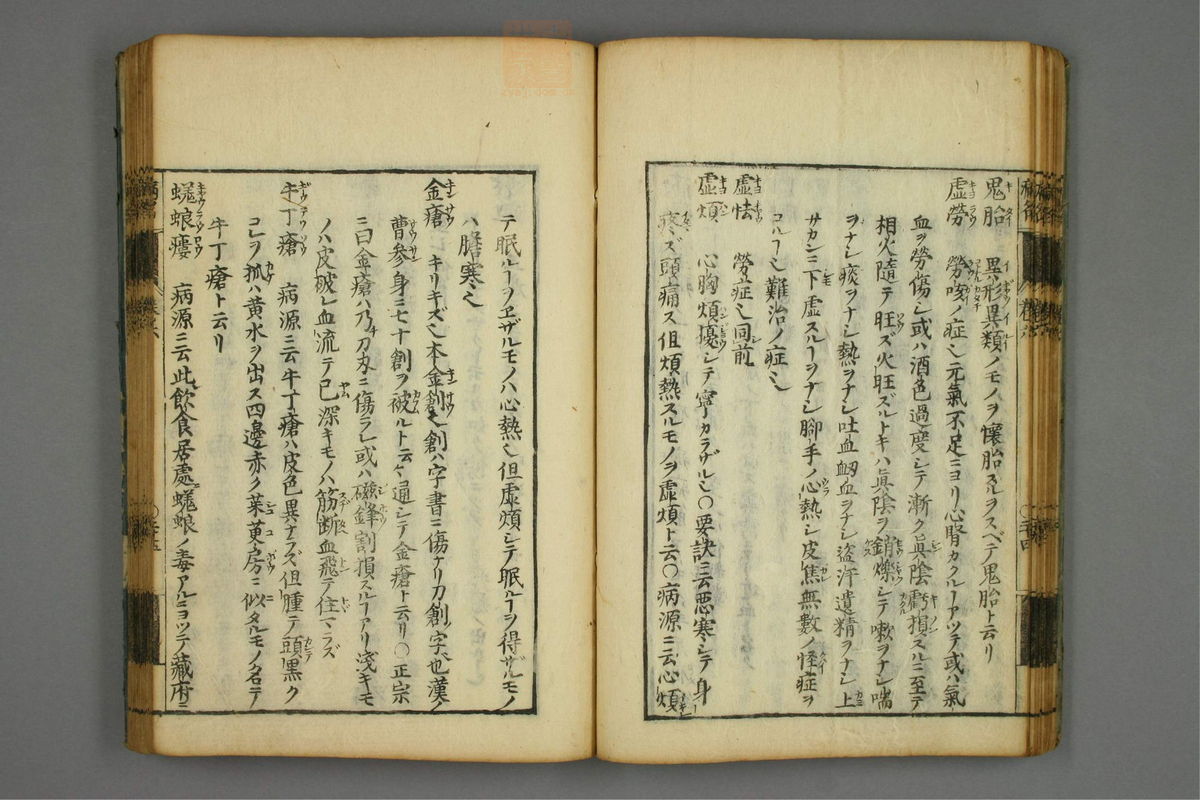 鬼胎 異形異類ノモノヲ懷胎スルヲスベテ鬼胎ト云リ
虚勞 勞咳ノ症乄元氣不足ニヨリ心腎カクルヿアツテ或ハ氣
血ヲ勞傷乄或ハ酒色過度シテ漸ク眞陰虧損スルニ至テ
相火隨テ旺ズ火旺ズルトキハ眞陰ヲ銷爍シテ嗽ヲナシ喘
ヲナシ痰ヲナシ熱ヲナシ吐血衂血ヲナシ盗汗遺精ヲナシ上
サカンニ下虚スルヿヲナシ脚手ノ心熱シ皮焦無數ノ怪症ヲ
難治ノ症也
虚怯 勞症也同前
虚煩 心胸煩擾シテ寧カラザル也〇要訣ニ云惡寒シテ身
疼ズ頭痛ス但煩熱スルモノヲ虚煩ト云〇病源ニ云心煩
テ眠ルヿヲヱザルモノハ心熱也但虚煩シテ眠ルヿヲ得ザルモノ
ハ膽寒也
金瘡 キリキズ也本金創也創ハ字書ニ傷ナリ刀創字也漢ノ
曹參身ニ七十創ヲ被ルト云々通シテ金瘡ト云リ〇正宗
ニ曰金瘡ハ乃チ刀刃ニ傷ラレ或ハ磁鋒割損スルヿアリ淺キモ
ノハ皮破レ血流テ已ム深キモノハ筋斷血飛テ住マラズ
牛丁瘡 病源ニ云牛丁瘡ハ皮色異ナラズ但腫テ頭黒ク
コレヲ抓ハ黄水ヲ出ス四邊赤ク茱萸房ニ似タルモノ名テ
牛丁瘡ト云リ
蜣蜋瘻 病源ニ云此飲食居處蜣蜋ノ毒アルニヨツテ藏府ニ